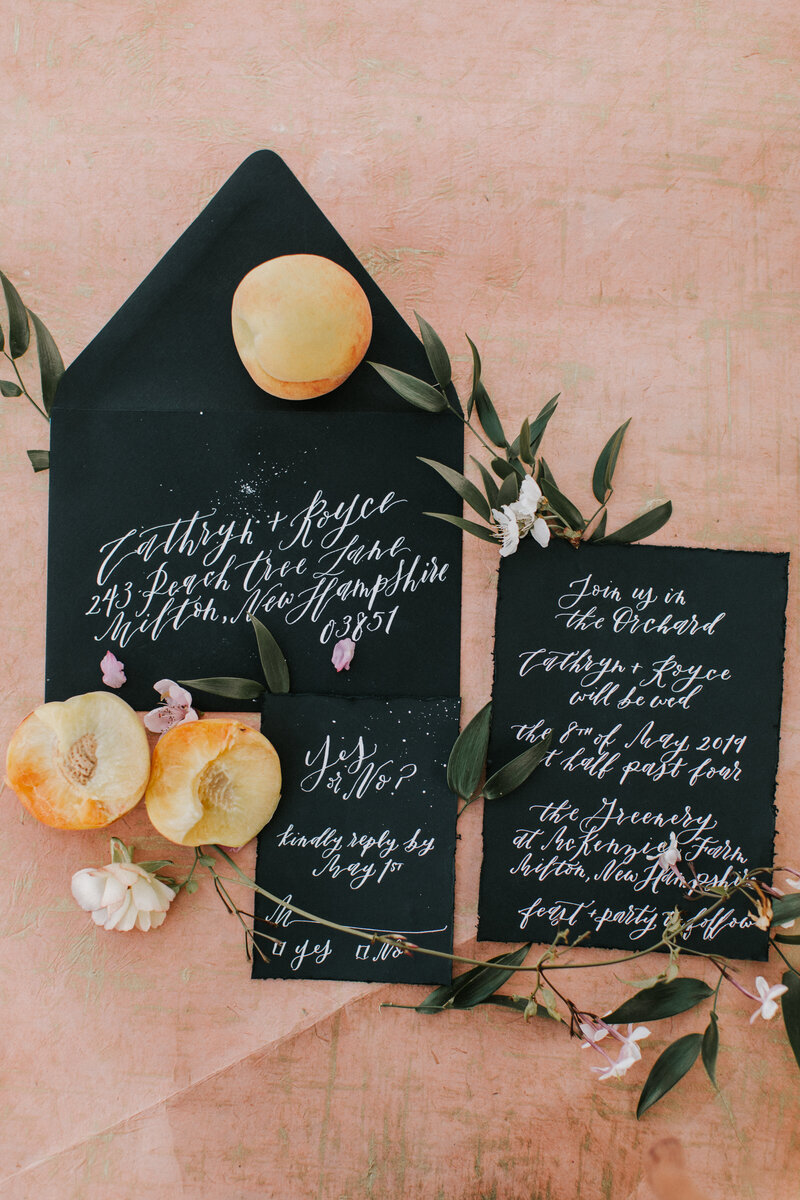 Cathryn + Royce
243 Peach tree Lane
Milton, New Hampshire
03851
Yes
or No?
kindly reply by
May 1st
M
yes No
Join us in
the Orchard
Cathryn + Royce
will be wed
the 8TH of May 2019
at half past four
the Greenery
at McKenzie's Farm
Milton, New Hampshire
feast + party to follow